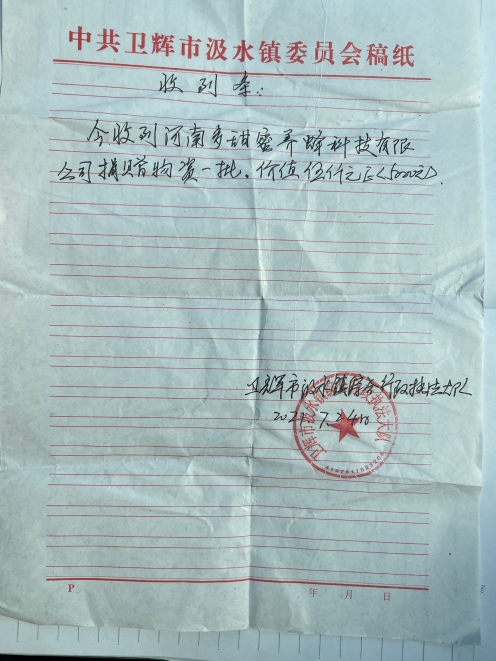 中共卫辉市汲水镇委员会稿纸
收到条:
今收到河南多甜蜜养蜂科技有限
公司捐赠物资一批,价值伍仟元正(5000元).
卫辉市汲水镇综合行政执法大队
2021.7.24日
卫辉市汲水镇综合行政执法大队
P
年 月 日